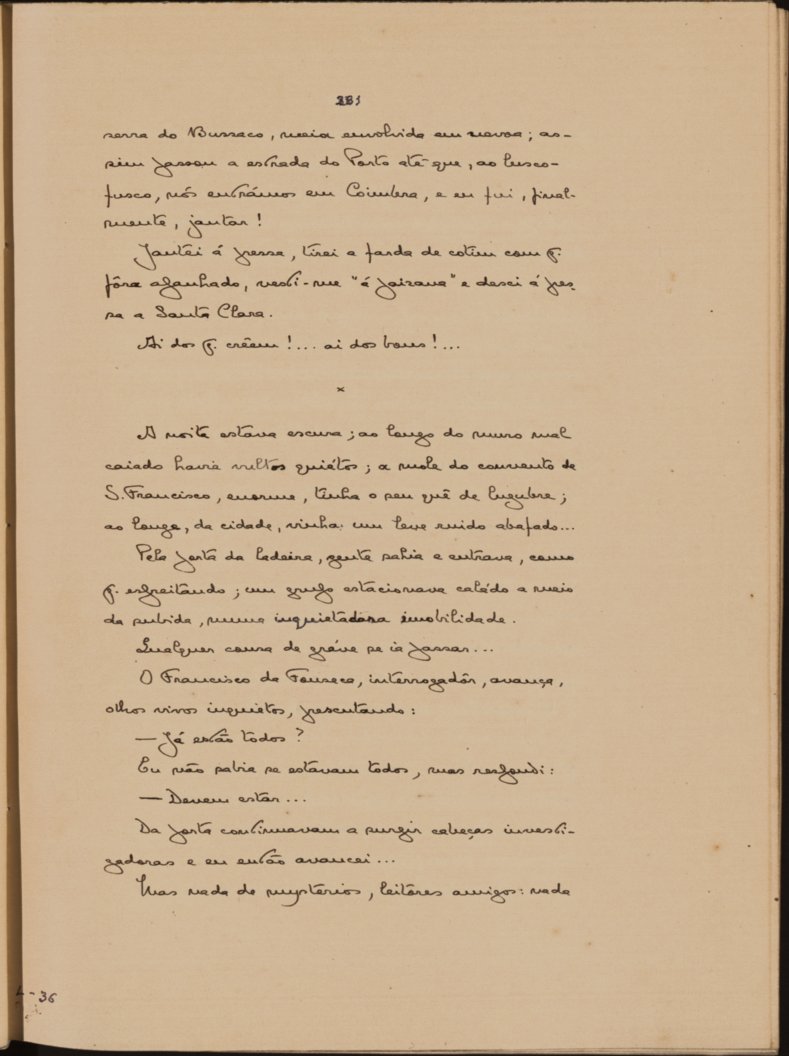 281
serra do Bussaco, meia envolvida em nevoa; as-
sim passou a estrada do Porto até que, ao lusco-
fusco, nós entrámos em Coimbra, e eu fui, final-
mente, jantar!
Jantei á pressa, tirei a farda de cotim com q.
fôra apanhado, vesti-me "á paizana" e desci á pres-
sa a Santa Clara.
Ai dos q. crêem!... ai dos bons!...
×
A noite estava escura; ao longo do muro mal
caiado havia vultos quiétos; a mole do convento de
S. Francisco, enorme, tinha o seu quê de lugubre;
ao longe, da cidade, vinha um leve ruido abafado...
Pela porta da ladeira, gente sahia e entrava, como
q. espreitando; um grupo estacionava caládo a meio
da subida, numa inquietadora imobilidade.
Qualquer cousa de gráve se ia passar...
O Francisco da Fonseca, interrogadôr, avança,
olhos vivos inquietos, prescutando:
— Já estão todos?
Eu não sabia se estavam todos, mas respondi:
— Devem estar...
Da porta continuavam a surgir cabeças investi-
gadoras e eu então avancei...
Mas nada de mysterios, leitôres amigos: nada
- 36